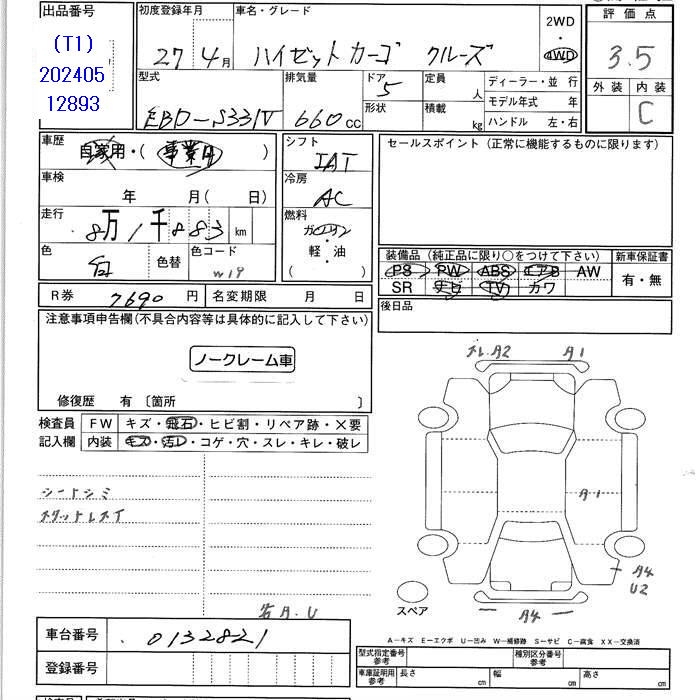 出品番号
(T1)
202405
12893
初度登録年月
27 4月
車名・グレード
ハイゼットカーゴ クルーズ
2WD
・
4WD
評価点
3.5
外装 内装
C
型式
EBD-S331V
排気量
660cc
ドア
5
形状
定員
人
積載
kg
ディーラー・並 行
モデル年式 年
ハンドル 左・右
車歴
自家用・( 事業用 )
車検
年 月( 日)
走行
8万1千883km
色
白
色替
色コード
W19
シフト
IAT
冷房
AC
燃料
ガソリン
・
軽・油
( )
セールスポイント (正常に機能するものに限ります)
装備品 (純正品に限り○をつけて下さい)
PS PW ABS エアB AW
SR ナビ TV カワ
新車保証書
有・無
後日品
R券 7690 円
名変期限 月 日
注意事項申告欄(不具合内容等は具体的に記入して下さい)
ノークレーム車
修復歴 有 〔箇所 〕
検査員
記入欄
FW キズ・飛石・ヒビ割・リペア跡・×要
内装 キズ・汚レ・コゲ・穴・スレ・キレ・破レ
シートシミ
A2
A1
A1
A4
U2
A4
スペア
車台番号 0132821
登録番号
A−キズ E−エクボ U−凹み W−補修跡 S−サビ C−腐食 XX−交換済
型式指定番号
参考
種別区分番号
参考
車庫証明用
参考
長さ cm 幅 cm 高さ cm